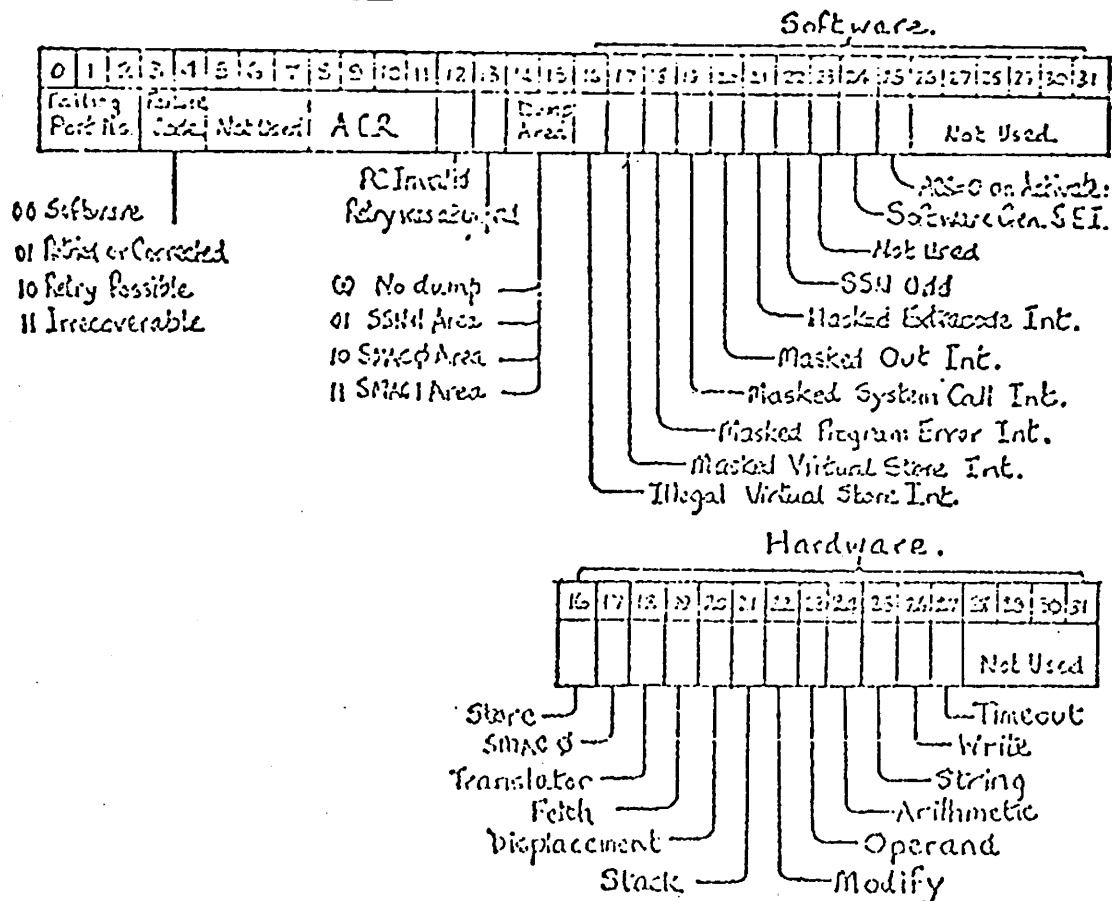 Software.
0 1 2 3 4 5 6 7 8 9 10 11 12 13 14 15 16 17 18 19 20 21 22 23 24 25 26 27 28 29 30 31
Failing Part No.
Failure Code
Not Used
ACR
Dump Area
Not Used
PC Invalid
Retry was attempted
00 Software
01 Retried or Corrected
10 Retry Possible
11 Irrecoverable
00 No dump
01 SSN+1 Area
10 SMACØ Area
11 SMAC1 Area
ACS=0 on Activate.
Software Gen. S.E.I.
Not Used
SSN Odd
Masked Extracode Int.
Masked Out Int.
Masked System Call Int.
Masked Program Error Int.
Masked Virtual Store Int.
Illegal Virtual Store Int.
Hardware.
16 17 18 19 20 21 22 23 24 25 26 27 28 29 30 31
Not Used
Store
SMAC Ø
Translator
Fetch
Displacement
Stack
Timeout
Write
String
Arithmetic
Operand
Modify